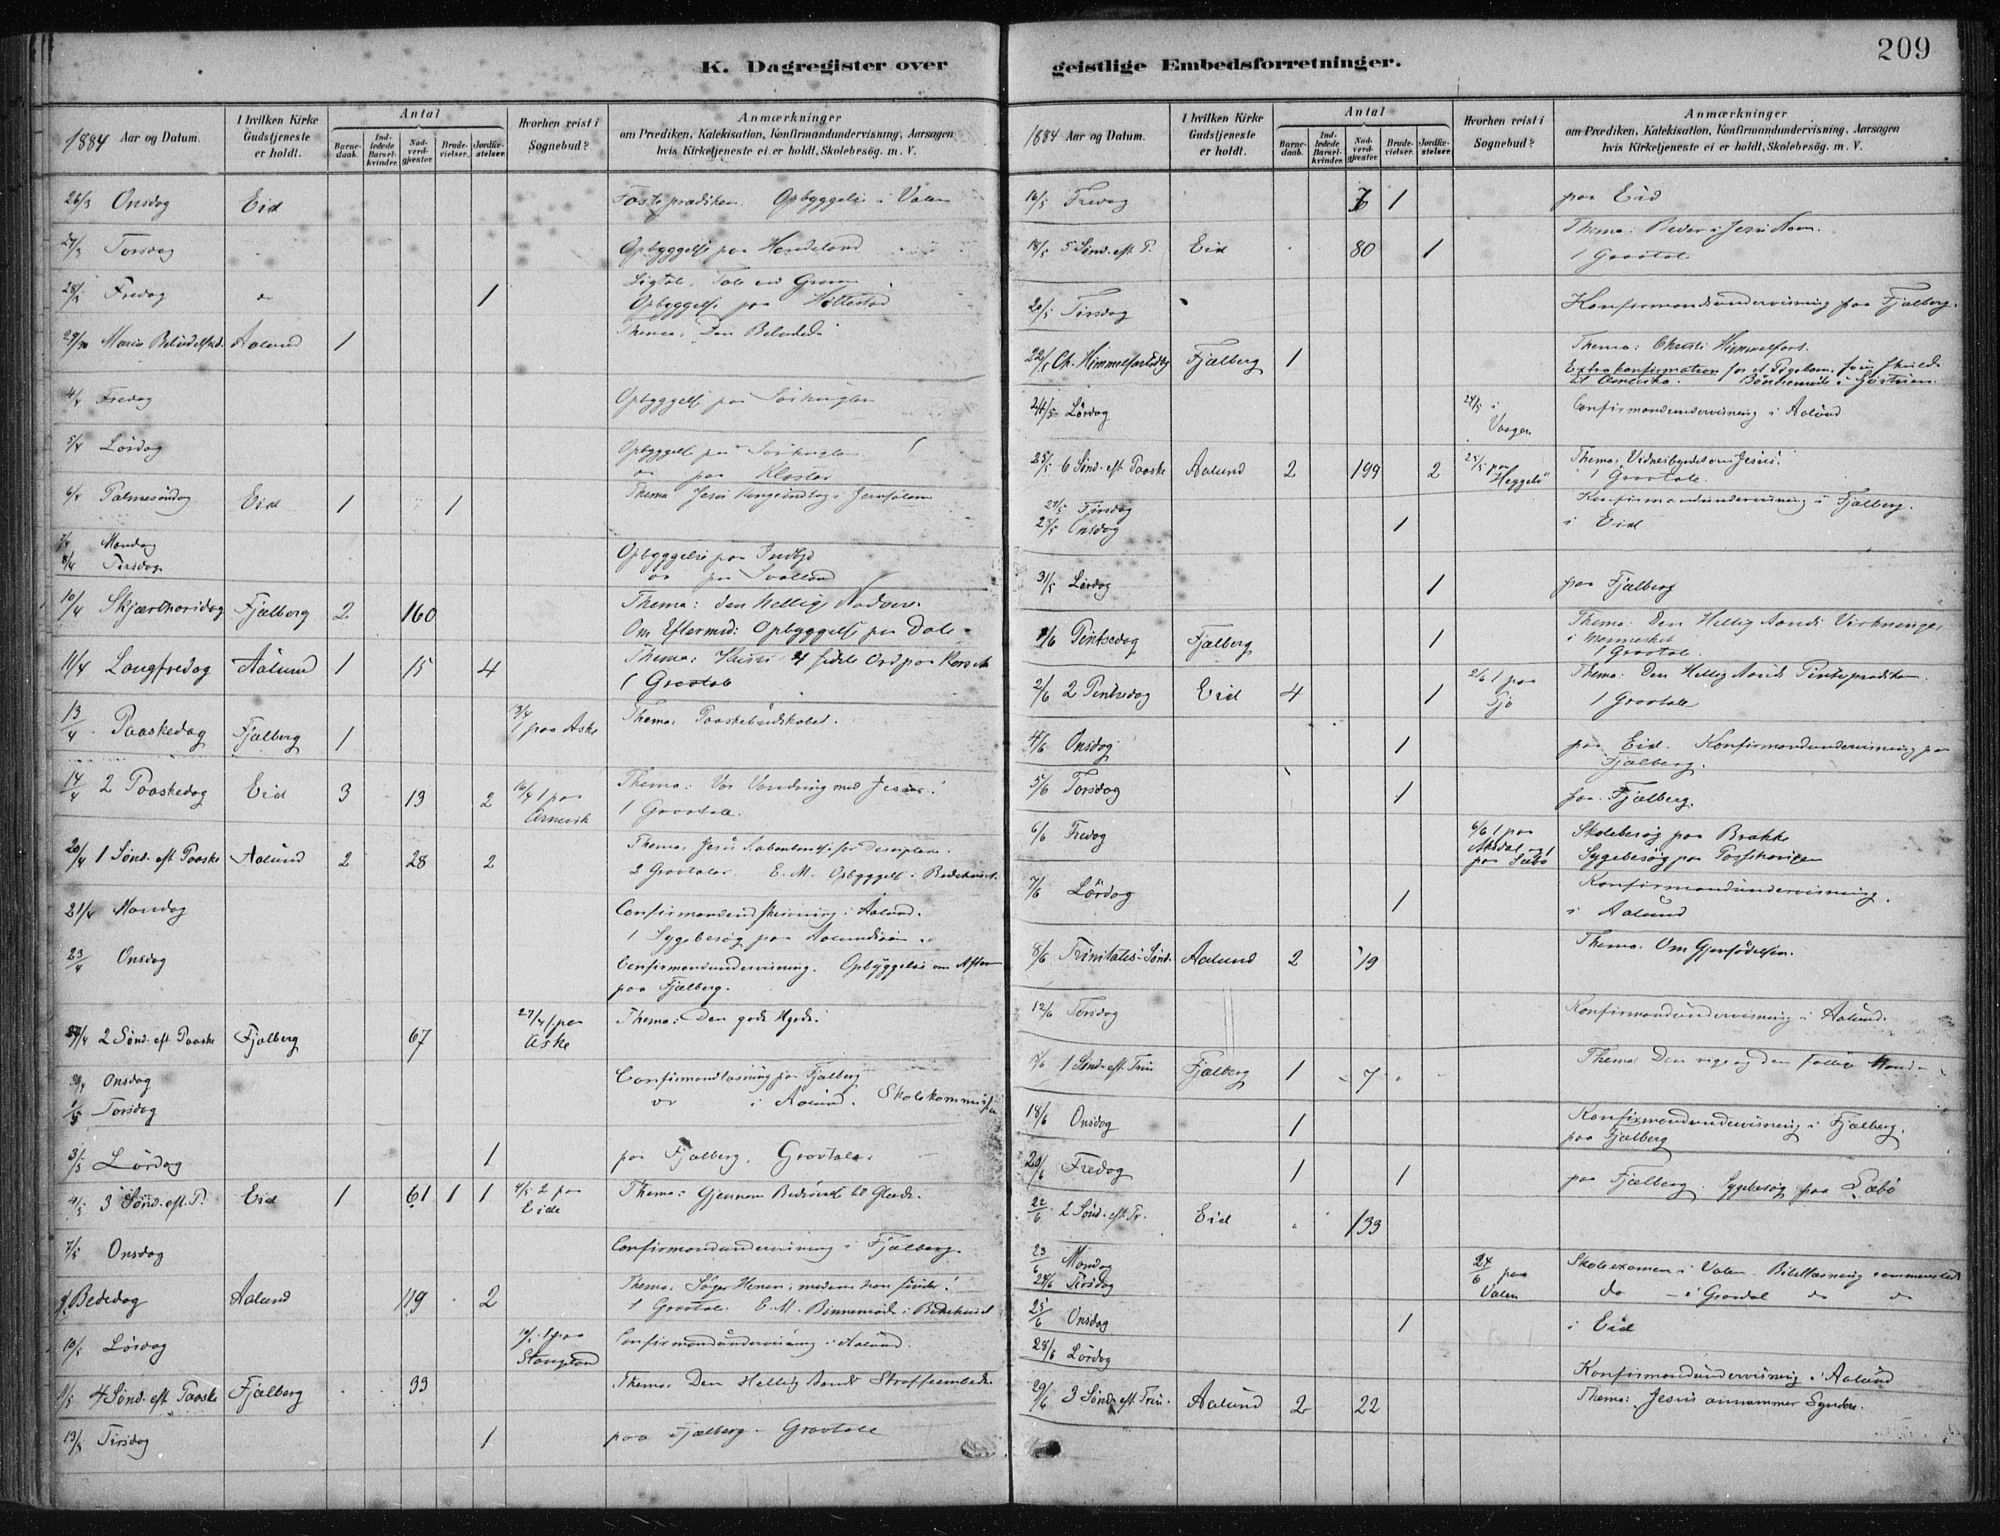 K. Dagregister over
geistlige Embedsforretninger.
209
1884 Aar og Datum.
I hvilken Kirke Gudstjeneste er holdt.
Antal
Barnedaab.
Indledede Barselkvinder.
Nadverdgjester.
Brudevielser.
Jordfæstelser.
Hvorhen reist i Sognebud?
Anmærkninger
om Prædiken, Katekisation, Konfirmandundervisning, Aarsagen
hvis Kirketjeneste ei er holdt, Skolebesög. m. V.
26/3 Onsdag Eid Opbyggelse i Valen
27/3 Torsdag Opbyggelse paa
28/3 Fredag 1
Opbyggelse paa
Maria Aalund 1 Thema: Den
4/4 Fredag Opbyggelse paa
5/4 Lördag Opbyggelse paa
do paa Kloster
6/4 Palmesöndag Eid 1 1 Thema Jesu i
7/4 Mandag Opbyggelse paa
8/4 Tirsdag do paa
10/4 Skjærthorsdag Fjælberg 2 160 Thema: den hellige Nadvere.
Om Eftermid: Opbyggelse paa Dale.
11/4 Langfredag Aalund 1 15 4 Thema: Ord paa Korset
1 Gravtale
13/4 Paaskedag Fjælberg 1 1 paa Aske Thema: Paaskebudskabet.
14/4 2 Paaskedag Eid 3 13 2 1 paa Thema: Vor Vandring med Jesus.
1 Gravtale.
20/4 1 Sönd. eft Paaske Aalund 2 28 2 Thema: Jesu for Disciplene.
2 Gravtaler. E. M. Opbyggelse i Bedehuset.
21/4 Mandag i Aalund.
1 Sygebesög paa
23/4 Onsdag Confirmandundervisning. Opbyggelse om Aften
paa Fjælberg.
27/4 2 Sönd. eft. Paaske Fjælberg 67 27/4 1 paa Aske Thema: Den gode Hyrde.
30/4 Onsdag Confirmandlæsning paa Fjælberg
1/5 Torsdag do i Aalund. Skolekommission
3/5 Lördag 1 paa Fjælberg. Gravtale.
4/5 3 Sönd. eft. P. Eid 1 61 1 1 4/5 2 paa Eide Thema: Gjennem til Glæde.
7/5 Onsdag Confirmandundervisning i Fjælberg.
Bededag Aalund 119 2 Thema: Söger Herren, medens han findes!
1 Gravtale. E. M. i Bedehuset
10/5 Lördag 10/5 1 paa Confirmandundervisning i Aalund.
11/5 4 Sönd. eft Paaske Fjælberg 33 Thema: Den Hellig Aands Straffeembede
13/5 Tirsdag 1 paa Fjælberg. Gravtale
1884 Aar og Datum.
I hvilken Kirke Gudstjeneste er holdt.
Antal
Barnedaab.
Indledede Barselkvinder.
Nadverdgjester.
Brudevielser.
Jordfæstelser.
Hvorhen reist i Sognebud?
Anmærkninger
om Prædiken, Katekisation, Konfirmandundervisning, Aarsagen
hvis Kirketjeneste ei er holdt, Skolebesög. m. V.
16/5 Fredag 1 paa Eid
18/5 5 Sönd. eft P. Eid 80 1 Thema: Beder i Jesu Navn.
1 Gravtale
20/5 Tirsdag Konfirmandundervisning paa Fjælberg.
22/5 Ch. Himmelfartsdag Fjælberg 1 Thema: Christi Himmelfart.
Extrakonfirmation for et Pigebarn, som
til Amerika.
24/5 Lördag 24/5 i Vaagen Confirmandundervisning i Aalund
25/5 6 Sönd. eft Paaske Aalund 2 199 2 25/5 paa Thema: Vidnesbyrdet om Jesus.
1 Gravtale.
27/5 Tirsdag Konfirmandundervisning i Fjælberg.
28/5 Onsdag 1 i Eid
31/5 Lördag 1 paa Fjælberg
1/6 Pintsedag Fjælberg 1 Thema: Den Hellig Aands Virkninger
i Mennesket
1 Gravtale.
2/6 2 Pintsedag Eid 4 1 2/6 1 paa Thema: Den Hellig Aands Pintseprædiken.
1 Gravtale
4/6 Onsdag 1 paa Eid. Konfirmandundervisning paa
Fjælberg.
5/6 Torsdag 1 paa Fjælberg.
6/6 Fredag 6/6 1 paa
paa Sæbö Skolebesög paa Brække
Sygebesög paa
7/6 Lördag 1 Konfirmandundervisning.
i Aalund
8/6 Trinitatis-Sönd. Aalund 2 19 Thema: Om Gjenfödelsen.
12/6 Torsdag Konfirmandundervisning i Aalund.
15/6 1 Sönd. eft. Trin Fjælberg 1 7 Thema: Den rige og den fattige Mand
18/6 Onsdag 1 Konfirmandundervisning i Fjælberg.
paa Fjælberg
20/6 Fredag 1 1 paa Fjælberg. Sygebesög paa Sæbö
22/6 2 Sönd. eft. Tr. Eid 133
23/6 Mandag 24/6 paa Valen Skoleexamen i Valen. Bibellæsning sammesteds
24/6 Tirsdag do – i do do
25/6 Onsdag 1 i Eid
28/6 Lördag Konfirmandundervisning i Aalund
29/6 3 Sönd. eft Trin. Aalund 2 22 Thema: Jesus annammer Syndere.